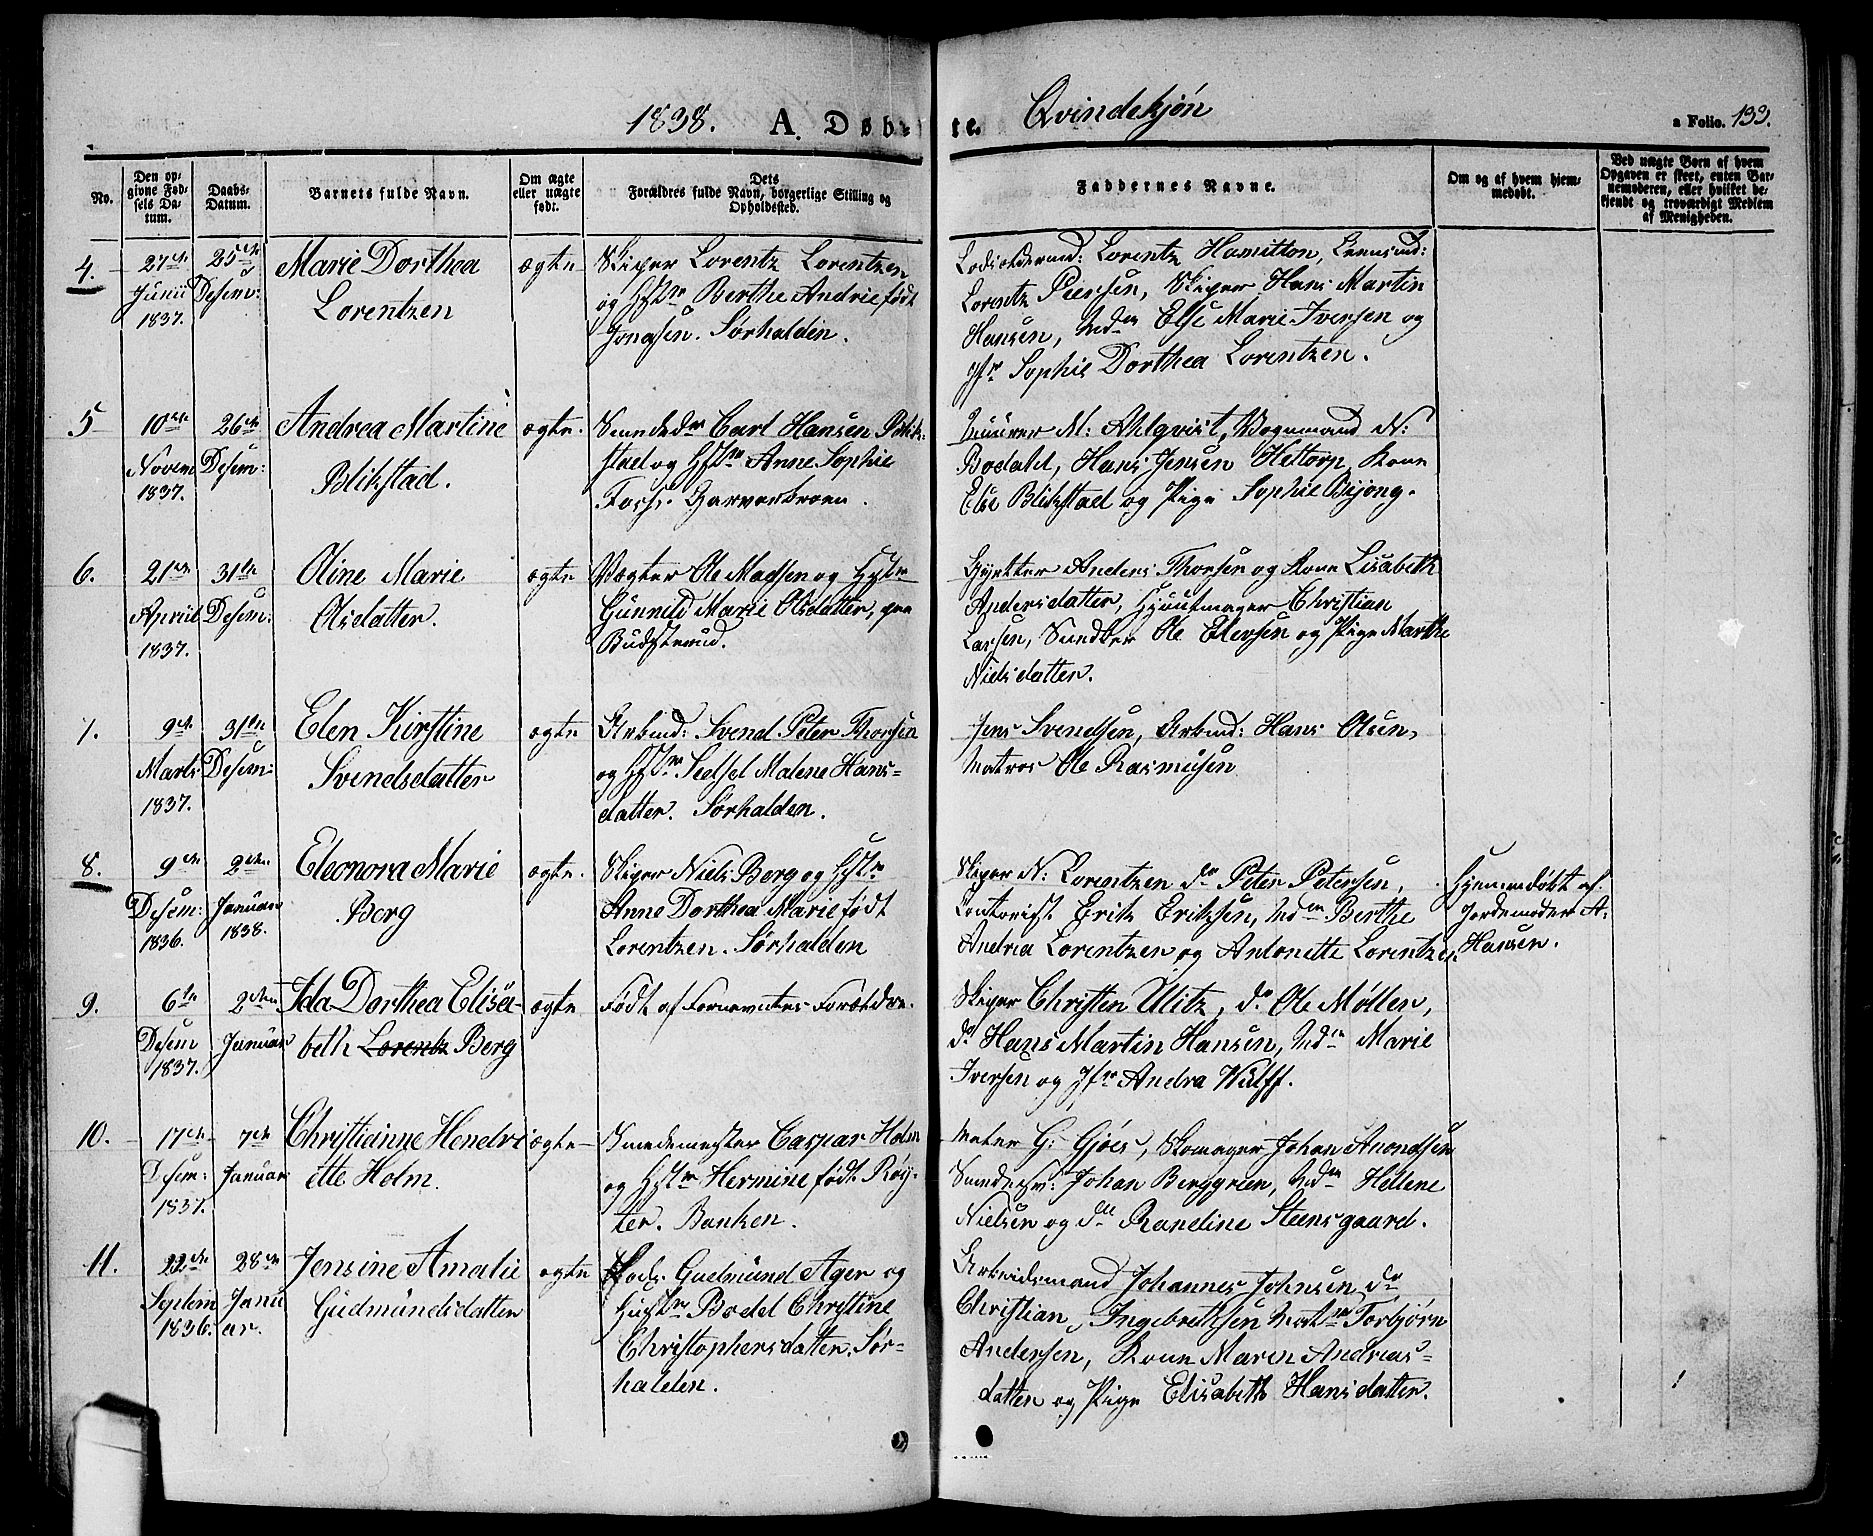 1838. A. Døb-
te. Qvindekjön
a Folio. 133.
No.
Den op-
givne Fød-
sels Da-
tum.
Daabs-
Datum.
Barnets fulde Navn.
Om ægte
eller uægte
født.
Dets
Forældres fulde Navn, borgerlige Stilling og
Opholdssted.
Faddernes Navne.
Om og af hvem hjem-
medøbt.
Ved uægte Børn af hvem
Opgaven er skeet, enten Bar-
nemoderen, eller hvilket be-
kjendt og troværdigt Medlem
af Menigheden.
4.
27de
Junii
1837.
25de
Desem:
Marie Dorthea
Lorentzen
ægte
Skiper Lorentz Lorentzen
og Hstr Berthe Andrie født
Jonassen. Sørhalden.
Lodsoldermd: Lorentz Hamilton,
Lorentz Peersen, Skiper Hans Martin
Hansen, Mdm Else Marie Iversen og
Jfr Sophie Dorthea Lorentzen.
5
10de
Novem
1837.
26de
Desem:
Andrea Martine
Blikstad.
ægte.
Smedsdr Carl Hansen Blik-
stad og Hstr Anne Sophie
Foss. Garverbroen.
Muurer M: Ahlqvist, Vognmand N:
Bodahl, Hans Jensen Heltorp, Kone
Else Blikstad og Pige Sophie Bjong.
6.
21de
April
1837.
31te
Desem:
Oline Marie
Olsdatter.
ægte
Vægter Ole Madsen og Hstr
Gunnild Marie Olsdatter, paa
Budsterud.
Gjørtler Anders Thorsen og Kone Lisabeth
Andersdatter, Hjuulmager Christian
Larsen, Snedker Ole Elevsen og Pige Marthe
Nielsdatter.
7.
9de
Marts
1837.
31te
Desem:
Elen Kirstine
Svendsdatter
ægte
Arbmd: Svend Peter Thorsen
og Hstr Sedsel Malene Hans-
datter. Sørhalden.
Jens Svendsen, Arbmd: Hans Olsen,
Matros Ole Rasmusen
8.
9de
Desem:
1836.
2den
Januar
1838.
Eleonora Marie
Berg
ægte.
Skiper Niels Berg og Hstr
Anne Dorthea Marie født
Lorentzen. Sørhalden
Skiper N: Lorentzen do Peter Petersen,
Contorist Erik Eriksen, Mdm Berthe
Andrea Lorentzen og Antonette Lorentzen
Hjemmedøbt af
Jordemoder A.
Hansen.
9.
6te
Desem
1837.
2den
Januar
Ida Dorthea Elisa-
beth Lorentz Berg
ægte
Født af Fornævnte Forældre.
Skiper Christen Ulitz, do Ole Møller,
do Hans Martin Hansen, Mdm Marie
Iversen og Jfr Andra Wulff.
10.
17de
Desem:
1837.
7de
Januar
Christianne Hendri
ette Holm.
ægte
Smedemester Caspar Holm
og Hstr Hermine født Røy-
ter. Banken.
Maler G: Gjøes, Skomager Johan Amondsen
Smedesv: Johan Berggrien, Mdm Hellene
Nielsen og do Raneline Steensgaard.
11.
22de
Septem
1836.
28de
Janu
ar.
Jensine Amalie
Gudmundsdatter
ægte
Lods. Gudmund Ager og
Hustr Bodel Christine
Christophersdatter. Sør-
halden.
Arbeidsmand Johannes Johnsen do
Christian Ingebrethsen Matrs Torbjørn
Andersen, Kone Maren Andreas-
datter og Pige Elisabeth Hansdatter.